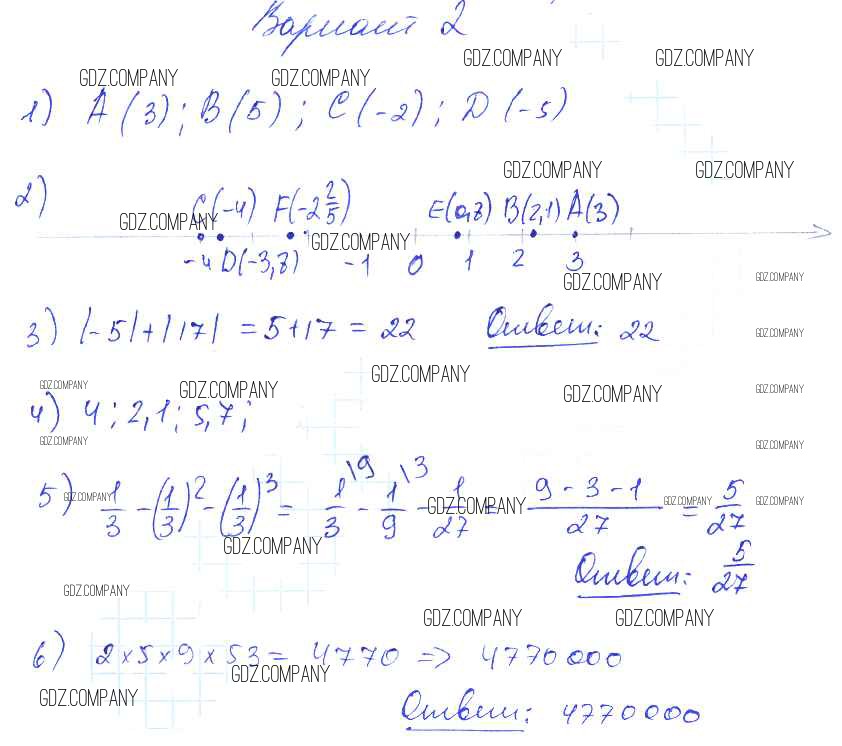 Вариант 2
GDZ.COMPANY GDZ.COMPANY
GDZ.COMPANY GDZ.COMPANY
1) A (3); B (5); C (-2); D (-5)
GDZ.COMPANY GDZ.COMPANY
2) C(-4) F(-2 2/5) E(0,8) B(2,1) A(3)
GDZ.COMPANY GDZ.COMPANY
-4 D(-3,8) -1 0 1 2 3
GDZ.COMPANY GDZ.COMPANY
3) |-5|+|17| = 5+17 = 22 Ответ: 22
GDZ.COMPANY
GDZ.COMPANY GDZ.COMPANY GDZ.COMPANY GDZ.COMPANY GDZ.COMPANY
4) 4; 2,1; 5,7;
GDZ.COMPANY GDZ.COMPANY
5) 1/3 - (1/3)² - (1/3)³ = 1/3 \9 - 1/9 \3 - 1/27 = 9 - 3 - 1 / 27 = 5/27
GDZ.COMPANY GDZ.COMPANY GDZ.COMPANY GDZ.COMPANY
GDZ.COMPANY
Ответ: 5/27
GDZ.COMPANY
GDZ.COMPANY GDZ.COMPANY
6) 2 × 5 × 9 × 53 = 4770 => 4770000
GDZ.COMPANY
GDZ.COMPANY
Ответ: 4770000